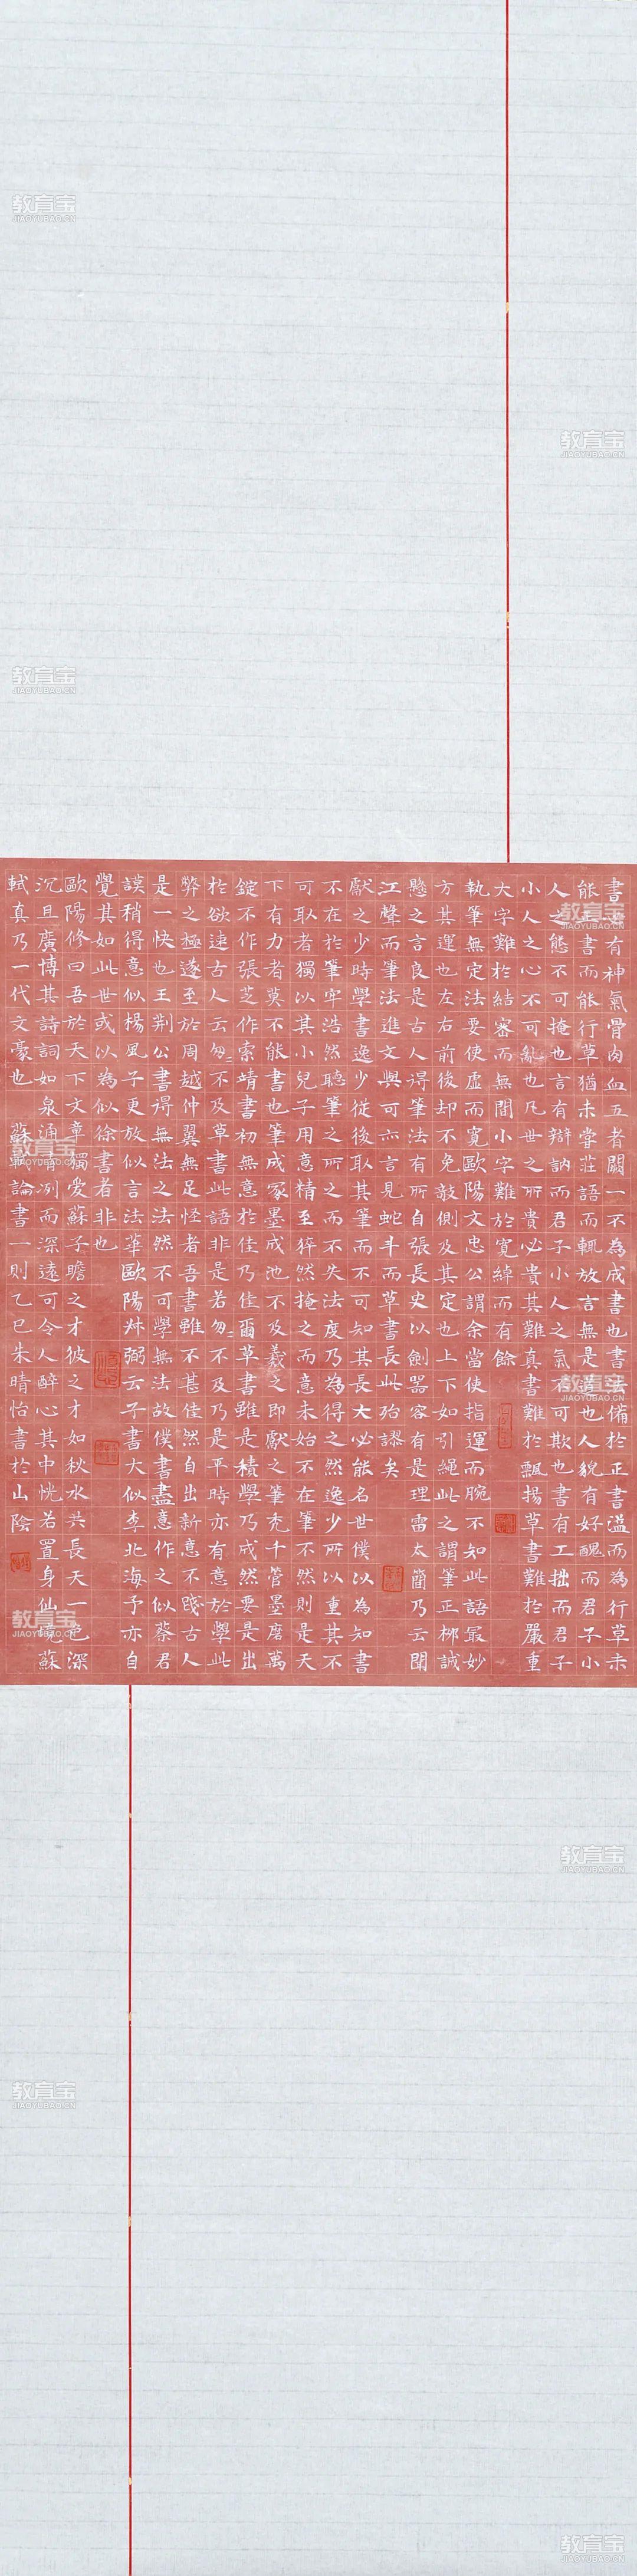 書必有神氣骨肉血五者闕一不為成書也書法備於正書溢而為行草未
能正書而能行草猶未嘗莊語而輒放言無是道也人貌有好醜而君子小
人之態不可掩也言有辯訥而君子小人之氣不可欺也書有工拙而君子
小人之心不可亂也凡世之所貴必貴其難真書難於飄揚草書難於嚴重
大字難於結密而無間小字難於寬綽而有餘
執筆無定法要使虛而寬歐陽文忠公謂余當使指運而腕不知此語最妙
方其運也左右前後却不免欹側及其定也上下如引繩此之謂筆正柳誠
懸之言良是古人得筆法有所自張長史以劍器容有是理雷太簡乃云聞
江聲而筆法進文與可亦言見蛇斗而草書長此殆謬矣
獻之少時學書逸少從後取其筆而不可知其長大必能名世僕以為知書
不在於筆牢浩然聽筆之所之而不失法度乃為得之然逸少所以重其不
可取者獨以其小兒子用意精至猝然掩之而意未始不在筆不然則是天
下有力者莫不能書也筆成冢墨成池不及羲之即獻之筆禿千管墨磨萬
錠不作張芝作索靖書初無意於佳乃佳爾草書雖是積學乃成然要是出
於欲速古人云匆〻不及草書此語非是若匆〻不及乃是平時亦有意於學此
弊之極遂至於周越仲翼無足怪者吾書雖不甚佳然自出新意不踐古人
是一快也王荊公書得無法之法然不可學無法故僕書盡意作之似蔡君
謨稍得意似楊風子更放似言法華歐陽叔弼云子書大似李北海予亦自
覺其如此世或以為似徐書者非也
歐陽修曰吾於天下文章獨愛蘇子瞻之才彼之才如秋水共長天一色深
沉且廣博其詩詞如泉涌清冽而深遠可令人醉心其中恍若置身仙境蘇
軾真乃一代文豪也 蘇軾論書一則乙巳朱晴怡書於山陰
教育宝
JIAOYUBAO.CN